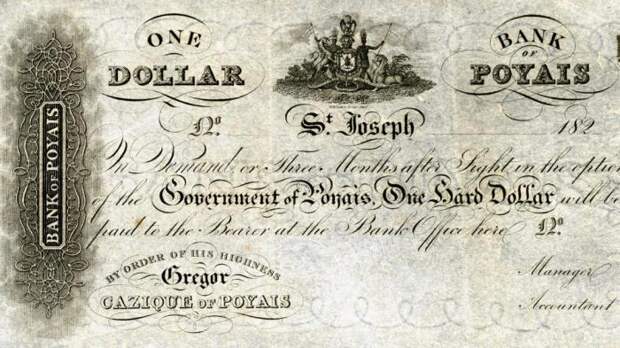 ONE DOLLAR
BANK OF POYAIS
No. St. Joseph 182
On Demand, or Three Months after Sight in the option
of the Government of Poyais, One Hard Dollar will be
paid to the Bearer at the Bank Office here No.
BY ORDER OF HIS HIGHNESS
Gregor
CAZIQUE OF POYAIS
Manager
Accountant
BANK OF POYAIS